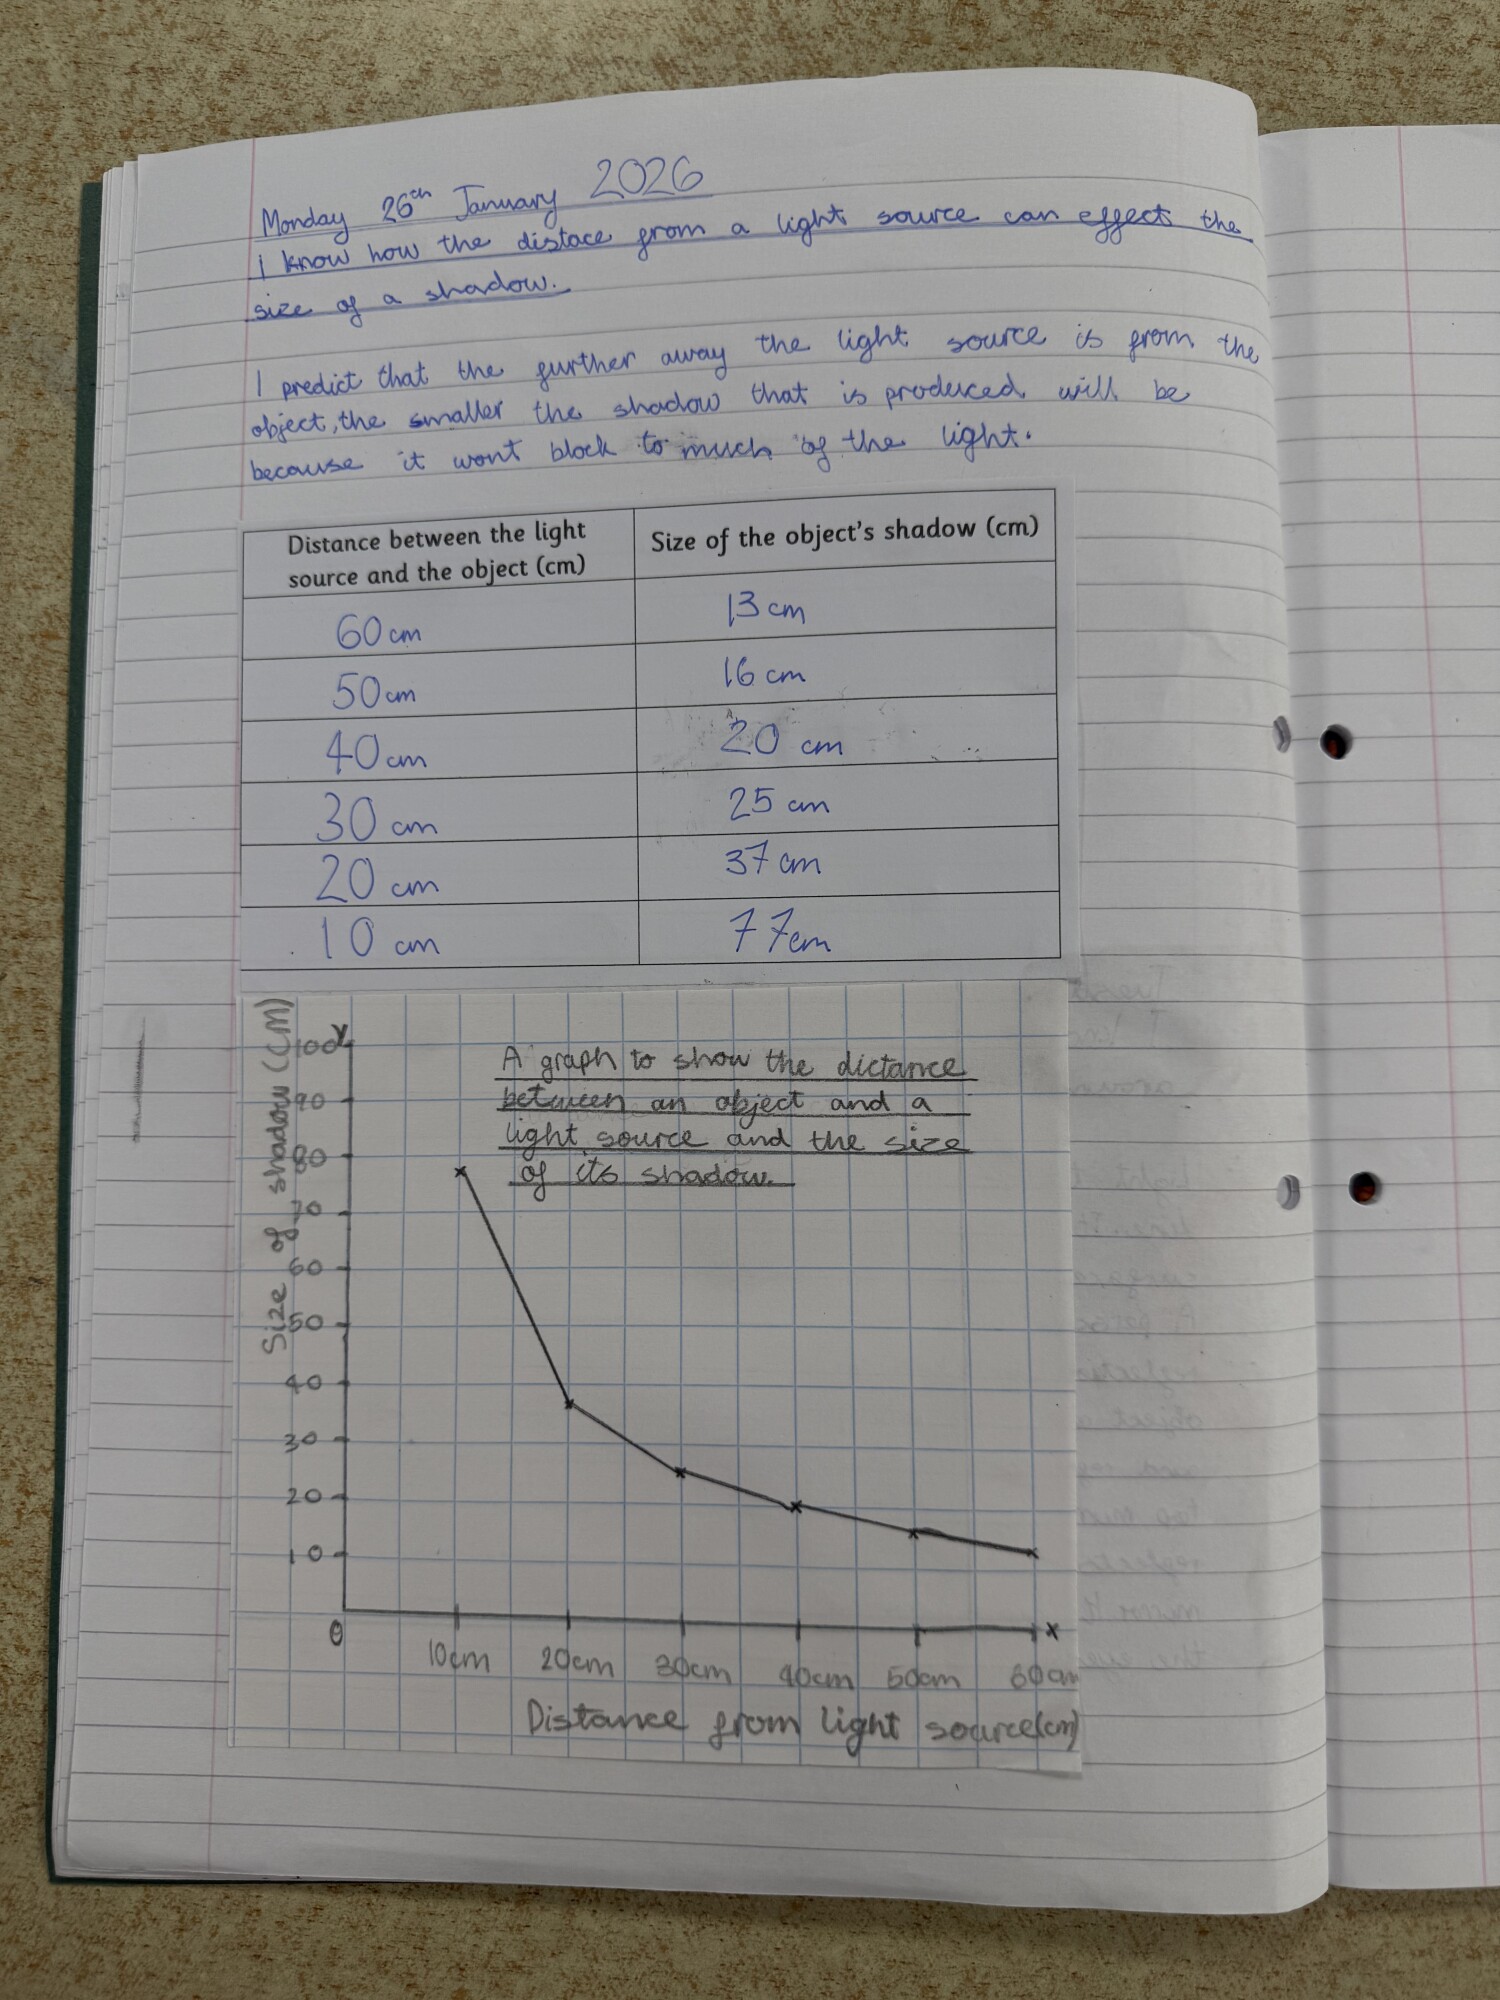 Monday 26th January 2026
I know how the distace from a light source can effect the
size of a shadow.
I predict that the further away the light source is from the
object, the smaller the shadow that is produced will be
because it wont block to much of the light.
Distance between the light source and the object (cm) Size of the object's shadow (cm)
60cm 13 cm
50cm 16 cm
40cm 20 cm
30 cm 25 cm
20 cm 37 cm
10 cm 77cm
Size of shadow (CM)
y
A graph to show the dictance
between an object and a
light source and the size
of its shadow.
100
90
80
70
60
50
40
30
20
10
0
x
10cm 20cm 30cm 40cm 50cm 60cm
Distance from light source(cm)